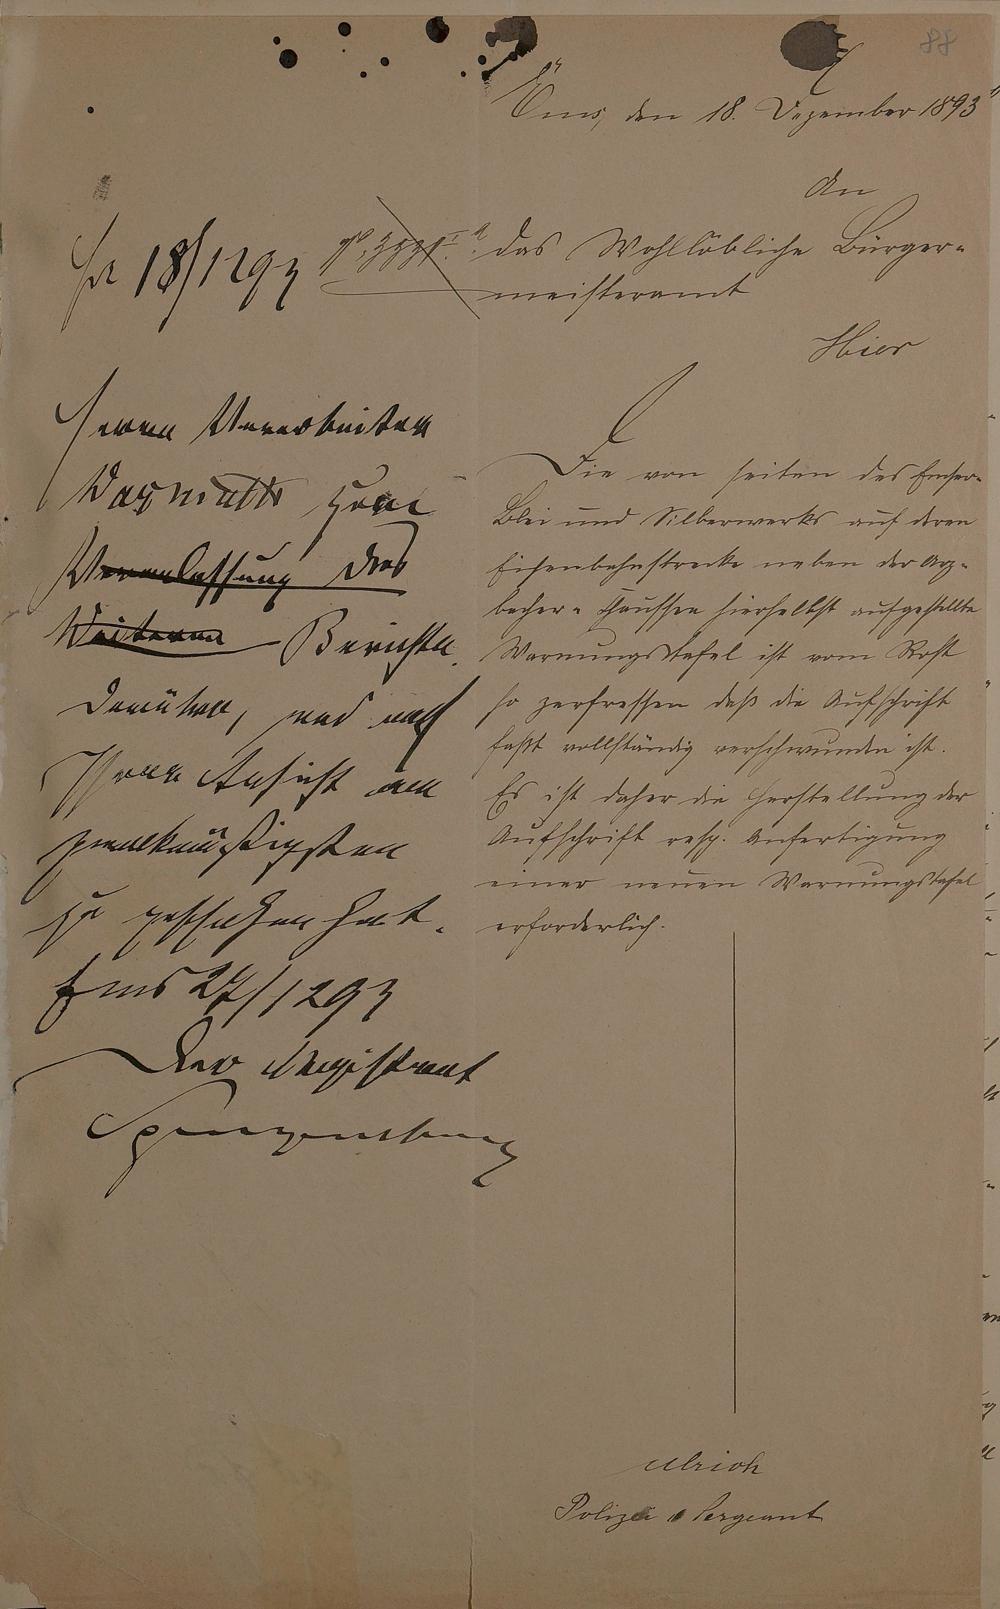 88
Ems, den 18. Dezember 1893
An
das Wohllöbliche Bürger-
meisteramt
Hier
Die von seiten des Emser-
Blei und Silberwerks auf deren
Eisenbahnstrecke neben der Arz-
bacher-Chaussee hierselbst aufgestellte
Warnungstafel ist vom Rost
so zerfressen daß die Aufschrift
fast vollständig verschwunden ist.
Es ist daher die Herstellung der
Aufschrift resp. Anfertigung
einer neuen Warnungstafel
erforderlich.
Ulrich
Polizei Sergeant
pr 18/12 93
Herrn Vorarbeiter
zum
Veranlassung des
Weiteren Berichte
darüber, was nach
Ihrer Ansicht am
zweckmäßigsten
zu geschehen hat.
Ems 27/12 93
Der Magistrat
Spangenberg